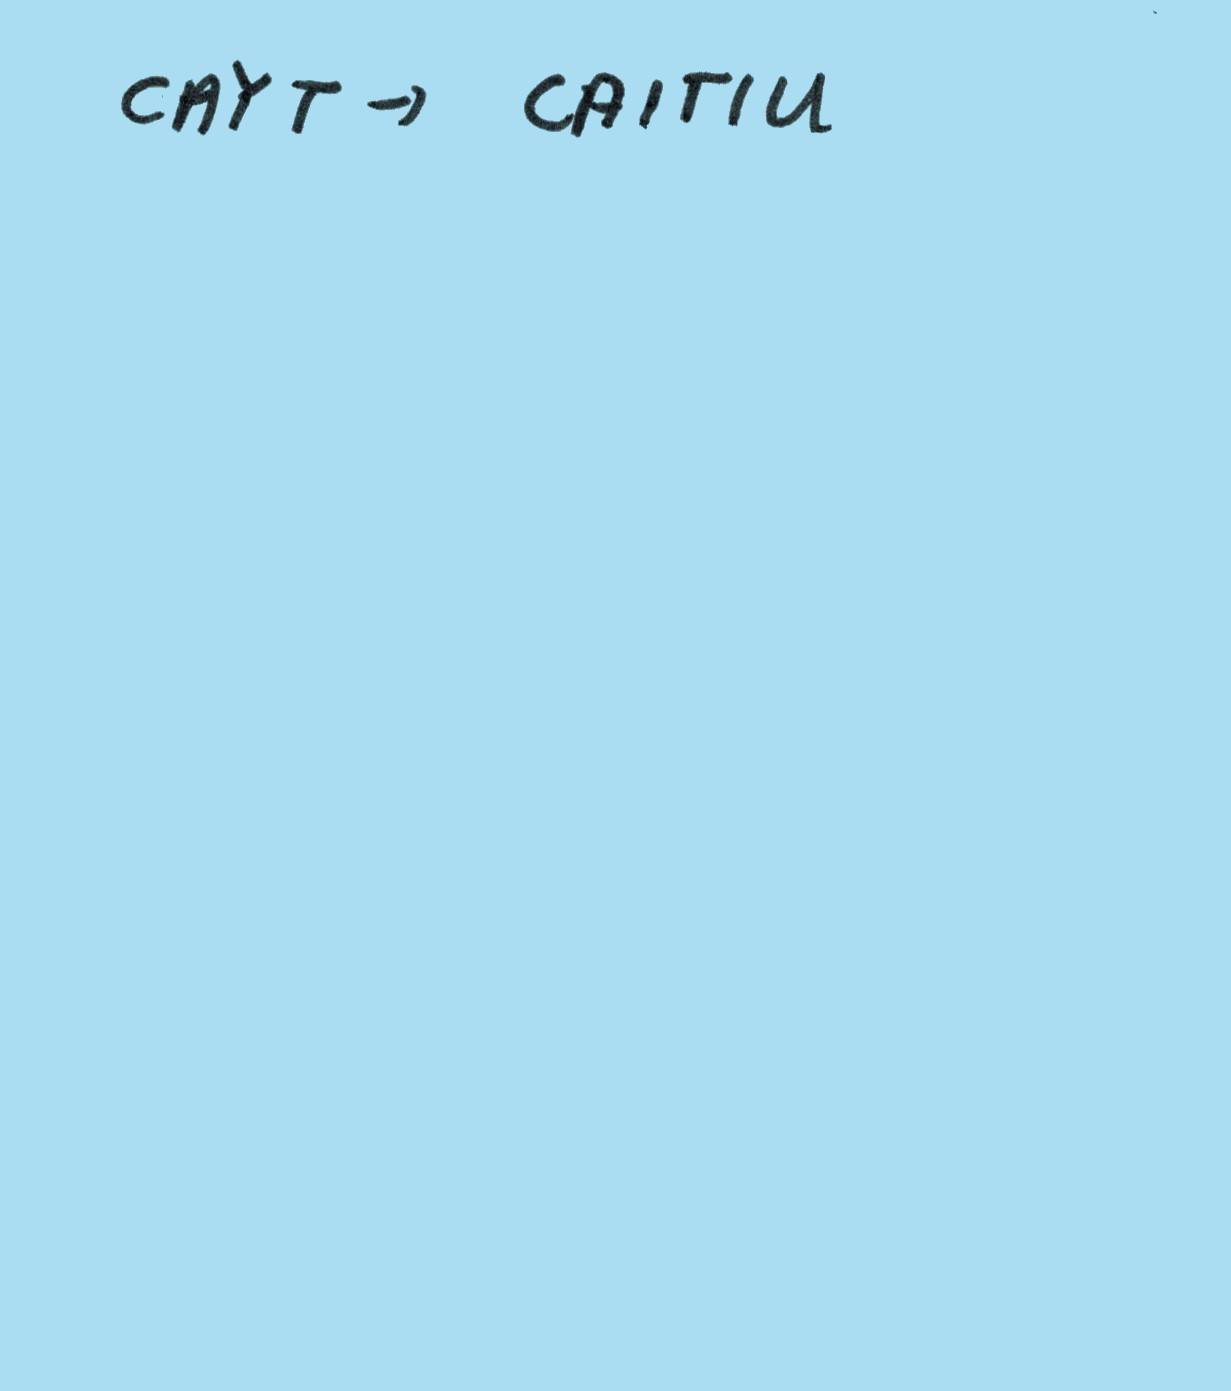 CAYT → CAITIU